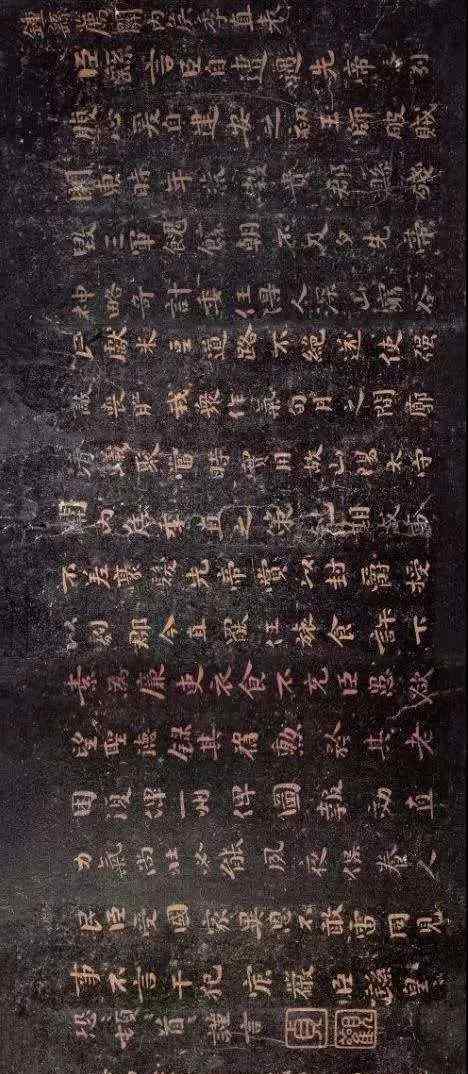 鍾繇薦關內侯季直表
臣繇言臣自遭遇先帝忝列
腹心爰自建安之初王師破賊
關東時年荒穀貴郡縣殘
毀三軍餽饟朝不及夕先帝
神略奇計委任得人深山窮谷
民獻米豆道路不絕遂使强
敵喪膽我眾作氣旬月之間廓
清蟻聚當時實用故山陽太守
關內侯季直之策剋期成事
不差豪髮先帝賞以封爵授
以劇郡今直罷任旅食許下
素為廉吏衣食不充臣愚欲
望聖德錄其舊勳矜其老
困復俾一州俾圖報效直
力氣尚壯必能夙夜保養人
民臣受國家異恩不敢雷同見
事不言干犯宸嚴臣繇皇
恐頓首謹言